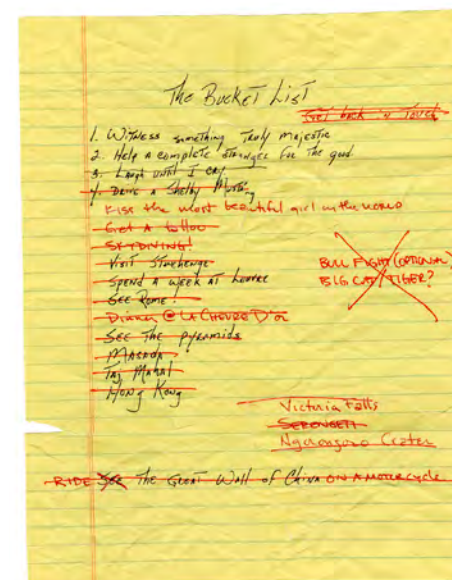 The Bucket List
Get back in Touch
1. Witness something Truly Majestic
2. Help a complete stranger for the good
3. Laugh until I cry
4. Drive a Shelby Mustang
Kiss the most beautiful girl in the world
Get a tattoo
SKYDIVING!
Visit Stonehenge
Spend a week at Louvre
See Rome!
Dinner @ LA CHEVRE D'or
See The pyramids
BULL FIGHT (OPTIONAL)
BIG CAT/TIGER?
Masada
Taj Mahal
Hong Kong
Victoria Falls
SERENGETI
Ngorongoro Crater
RIDE See The Great Wall of China ON A MOTORCYCLE